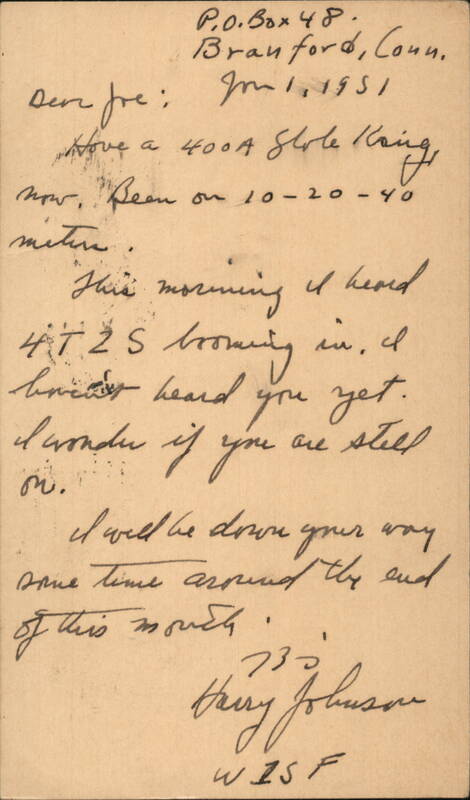 P.O. Box 48.
Branford, Conn.
Jan 1, 1951
Dear Joe:
Have a 400A Globe King,
now. Been on 10-20-40
meters.
This morning I heard
4TZS booming in. I
haven't heard you yet.
I wonder if you are still
on.
I will be down your way
some time around the end
of this month.
73's
Harry Johnson
W1SF